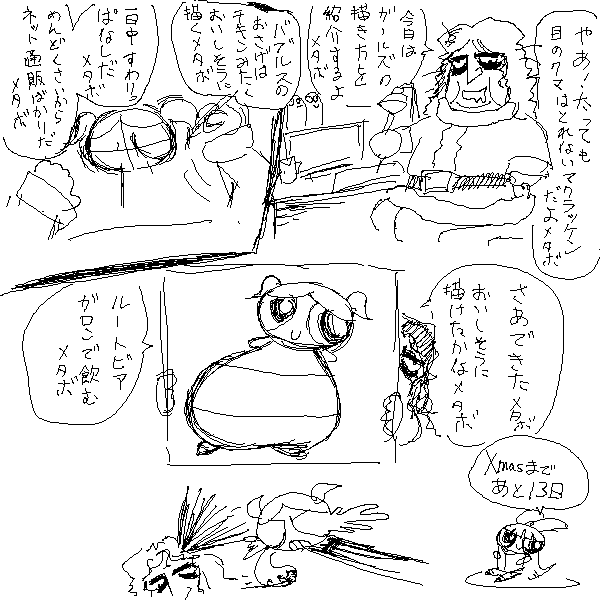 やあ!太っても
目のクマはとれないマクラッケン
だよメタボ
今日は
ガールズの
描き方を
紹介するよ
メタボ
バブルスの
おさげは
チキンみたく
おいしそうに
描くメタボ
一日中すわりっ
ぱなしだ
メタボ
めんどくさいから
ネット通販ばかりだ
メタボ
さあできたメタボ
おいしそうに
描けたかなメタボ
ルートビア
ガロンで飲む
メタボ
Xmasまで
あと13日